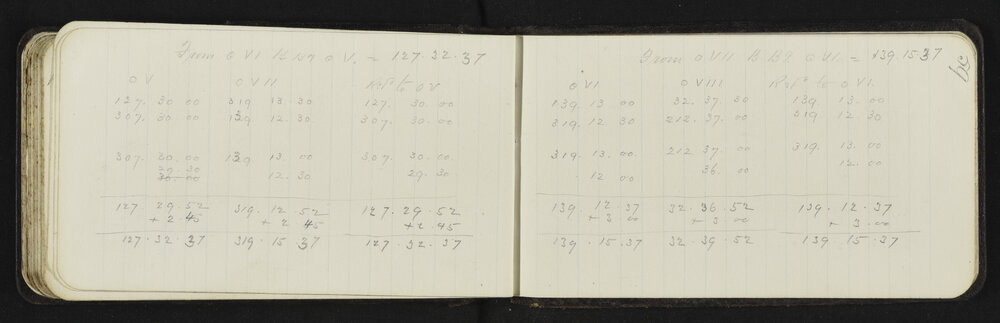 From o VI B Bg o V. = 127. 32. 37
o V o VII Ref to o V
127. 30. 00 319 13. 30 127. 30. 00
307. 30. 00 139 12. 30 307. 30. 00
307. 30. 00 139 13. 00 307. 30. 00
29. 30 12. 30 29. 30
30. 00
127 29. 52 319. 12. 52 127. 29. 52
+ 2. 45 + 2. 45 + 2. 45
127. 32. 37 319. 15. 37 127. 32. 37
From o VII B. Bg. o VI. = 139. 15. 37
59
o VI o VIII Ref to o VI.
139. 13 00 32. 37. 30 139. 13. 00
319. 12 30 212. 37. 00 319. 12. 30
319. 13. 00 212 37. 00 319. 13. 00
12 00 36. 00 12. 00
139. 12. 37 32. 36. 52 139. 12. 37
+ 3. 00 + 3. 00 + 3. 00
139. 15. 37 32. 39. 52 139. 15. 37